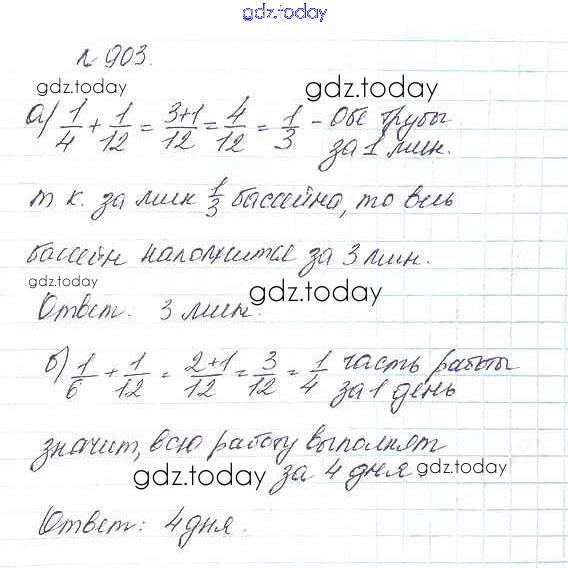 gdz.today
№ 903.
gdz.today gdz.today
а) 1/4 + 1/12 = 3+1/12 = 4/12 = 1/3 - Обе трубы
за 1 мин.
т. к. за мин 1/3 бассейна, то весь
бассейн наполнится за 3 мин.
gdz.today gdz.today
Ответ: 3 мин.
б) 1/6 + 1/12 = 2+1/12 = 3/12 = 1/4 часть работы
за 1 день
значит, всю работу выполнят
gdz.today за 4 дня gdz.today
Ответ: 4 дня.
gdz.today